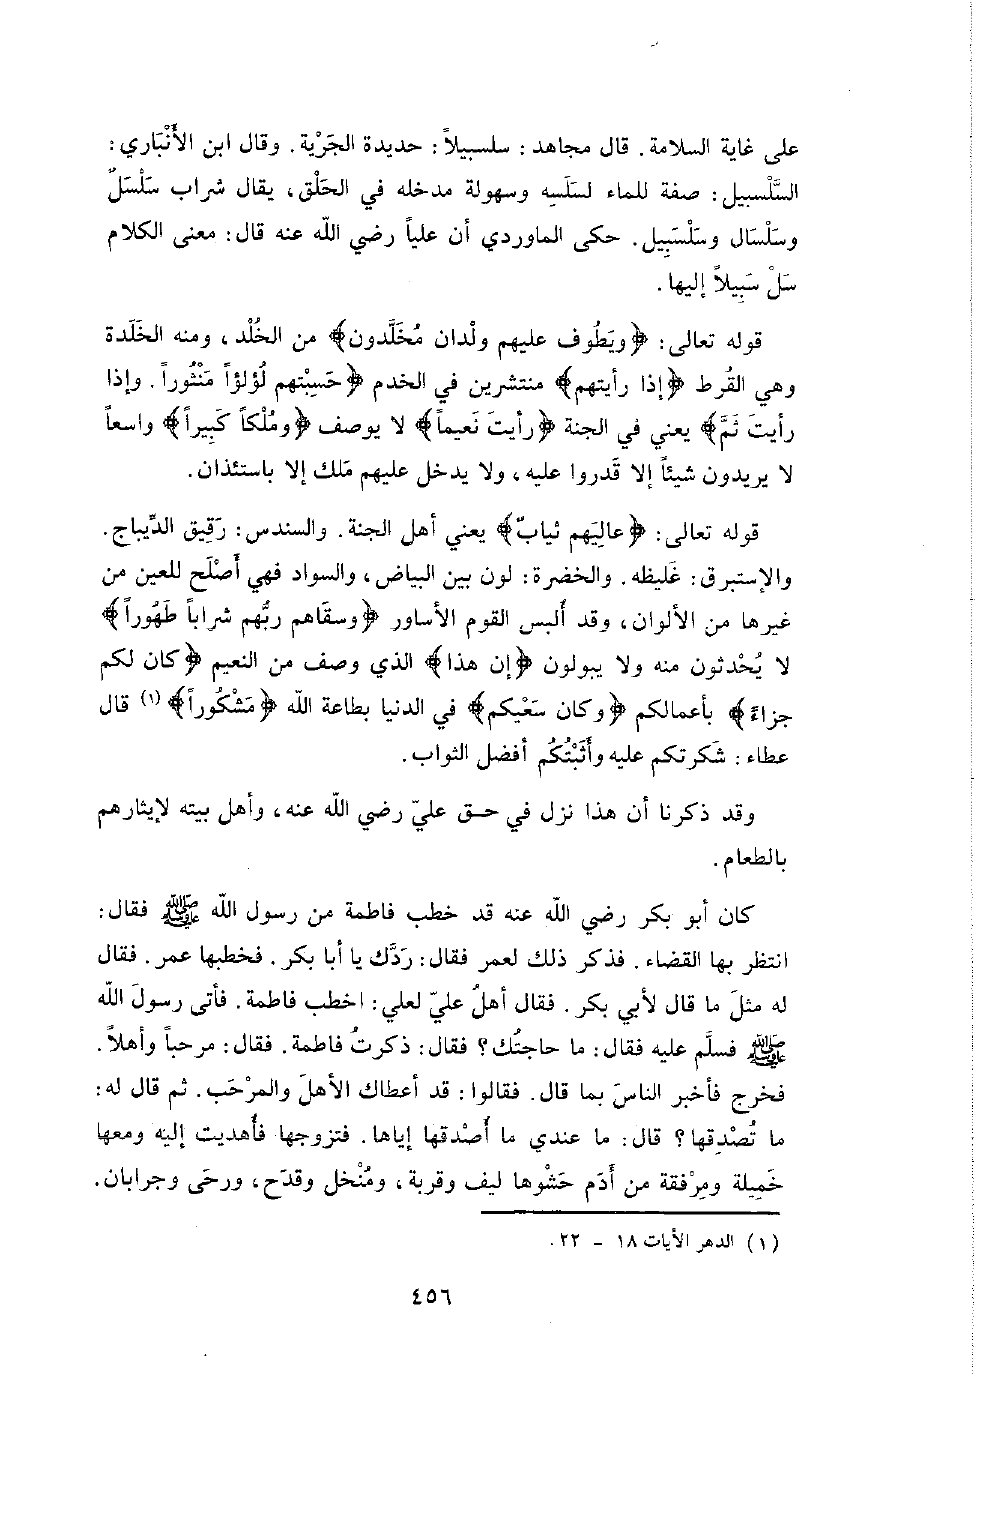 على غاية السلامة. قال مجاهد: سلسبيلاً: حديدة الجَرْية. وقال ابن الأَنْبَاري:
السَّلْسبيل: صفة للماء لسَلَسِه وسهولة مدخله في الحَلْق، يقال شراب سَلْسَلٌ
وسَلْسَال وسَلْسَبِيل. حكى الماوردي أن علياً رضي الله عنه قال: معنى الكلام
سَلْ سَبِيلاً إليها.
قوله تعالى: ﴿ويَطُوف عليهم ولْدان مُخَلَّدون﴾ من الخُلْد، ومنه الخَلَدة
وهي القُرط ﴿إذا رأيتهم﴾ منتشرين في الخدم ﴿حَسِبْتهم لُؤلؤاً مَنْثُوراً. وإذا
رأيتَ ثَمَّ﴾ يعني في الجنة ﴿رأيتَ نَعيماً﴾ لا يوصف ﴿ومُلْكاً كَبيراً﴾ واسعاً
لا يريدون شيئاً إلا قَدروا عليه، ولا يدخل عليهم مَلك إلا باستئذان.
قوله تعالى: ﴿عالِيَهم ثيابٌ﴾ يعني أهل الجنة. والسندس: رَقِيق الدِّيباج.
والإستبرق: غَليظه. والخضرة: لون بين البياض، والسواد فهي أَصْلَح للعين من
غيرها من الألوان، وقد أُلبس القوم الأساور ﴿وسقَاهم ربُّهم شراباً طَهُوراً﴾
لا يُحْدثون منه ولا يبولون ﴿إن هذا﴾ الذي وصف من النعيم ﴿كان لكم
جزاءً﴾ بأعمالكم ﴿وكان سَعْيكم﴾ في الدنيا بطاعة الله ﴿مَشْكُوراً﴾(١) قال
عطاء: شَكرتكم عليه وأَثَبْتُكُم أفضل الثواب.
وقد ذكرنا أن هذا نزل في حق عليّ رضي الله عنه، وأهل بيته لإيثارهم
بالطعام.
كان أبو بكر رضي الله عنه قد خطب فاطمة من رسول الله ﷺ فقال:
انتظر بها القضاء. فذكر ذلك لعمر فقال: رَدَّك يا أبا بكر. فخطبها عمر. فقال
له مثلَ ما قال لأبي بكر. فقال أهلُ عليّ لعلي: اخطب فاطمة. فأتى رسولَ الله
ﷺ فسلَّم عليه فقال: ما حاجتُك؟ فقال: ذكرتُ فاطمة. فقال: مرحباً وأهلاً.
فخرج فأخبر الناسَ بما قال. فقالوا: قد أعطاك الأهلَ والمرْحَب. ثم قال له:
ما تُصْدِقها؟ قال: ما عندي ما أُصْدقها إياها. فتزوجها فأُهديت إليه ومعها
خَمِيلة ومِرْفقة من أَدَم حَشْوها ليف وقربة، ومُنْخل وقدَح، ورحَى وجرابان.
(١) الدهر الأيات ١٨ - ٢٢.
٤٥٦